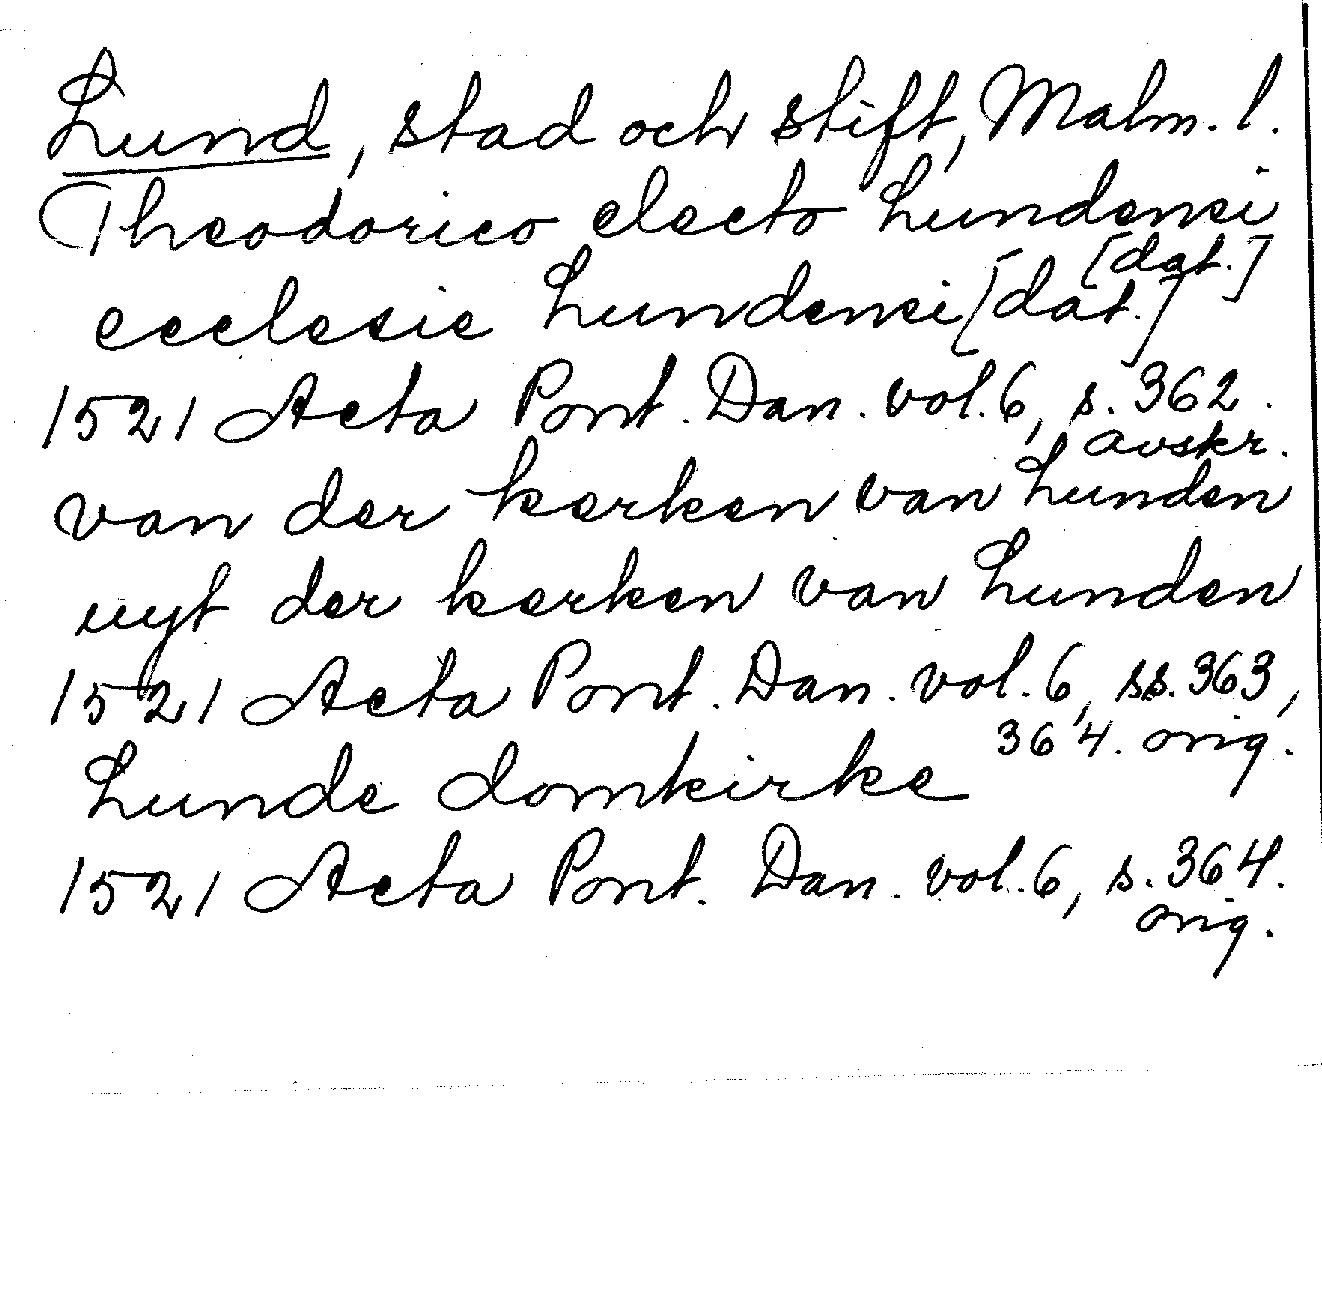 Lund, stad och stift, Malm. l.
Theodorico electo Lundensi
[dat.]
ecclesie Lundensi [dat.]
1521 Acta Pont. Dan. vol. 6, s. 362.
avskr.
van der kerken van Lunden
uyt der kerken van Lunden
1521 Acta Pont. Dan. vol. 6, ss. 363,
364. orig.
Lunde domkirke
1521 Acta Pont. Dan. vol. 6, s. 364.
orig.